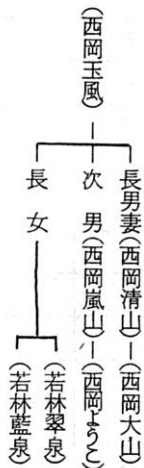 (西岡玉風)
長男妻(西岡清山)―(西岡大山)
次男(西岡嵐山)―(西岡ようこ)
長女
(若林翠泉)
(若林藍泉)